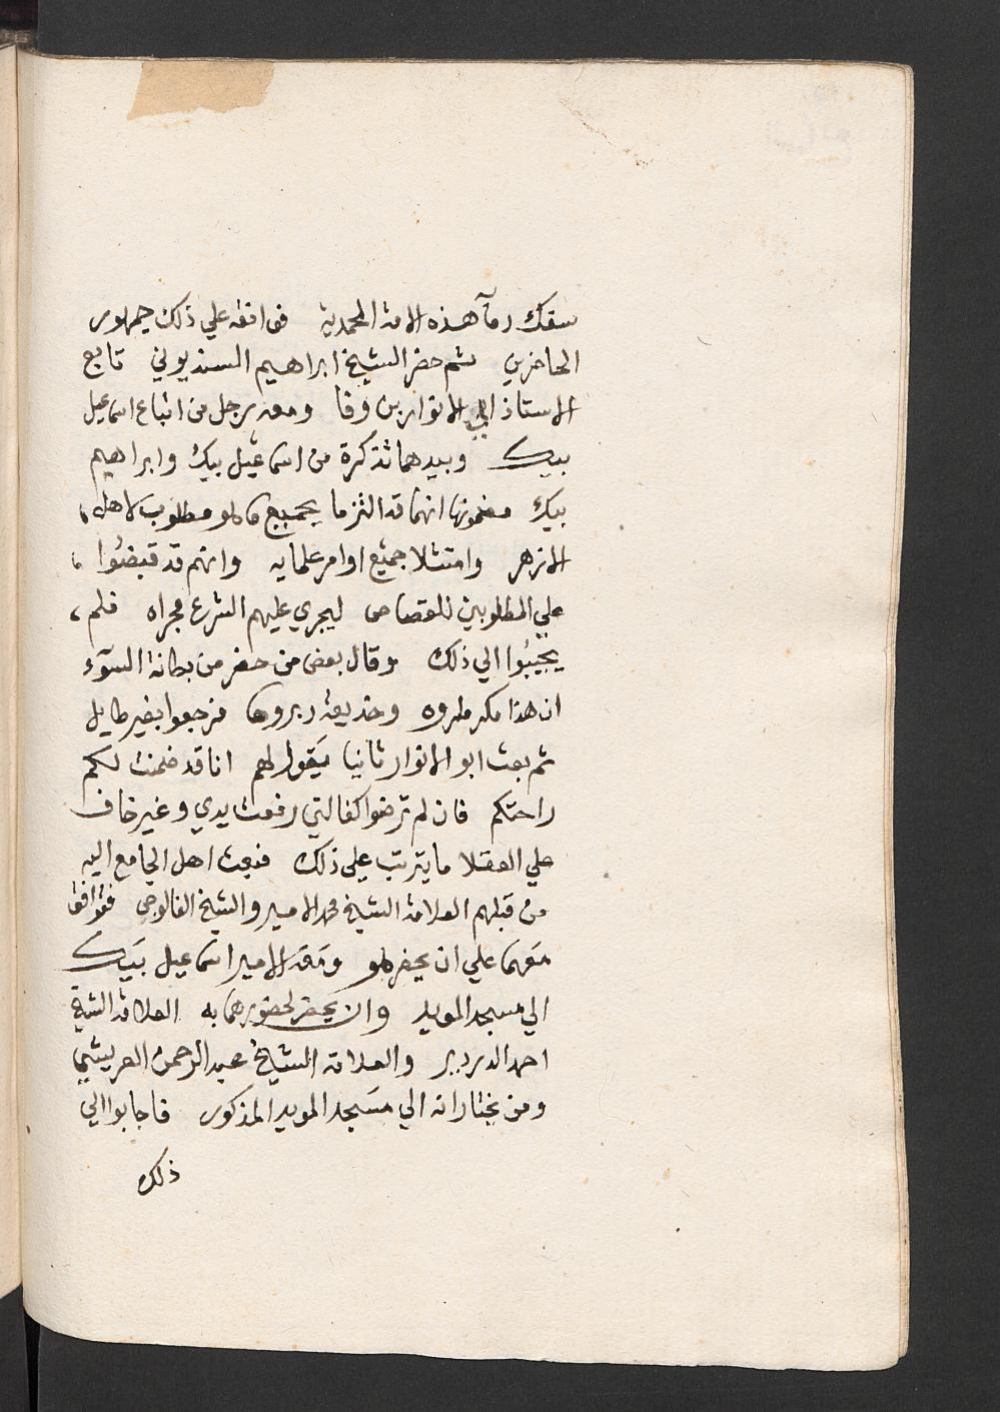 سفك دمآ هذه الامة المحمدية فوافقه علي ذلك جمهور
الحاضرين ثم حضر الشيخ ابراهيم السنديوني تابع
الاستاذ ابي الانوار بن وفا ومعه رجل من اتباع اسماعيل
بيك وبيدهما تذكرة من اسماعيل بيك وابراهيم
بيك مضمونها انهما قد التزما بجميع ما هو مطلوب لاهل
الازهر وامتثلا جميع اوامر علمايه وانهم قد قبضوا
علي المطلوبين للقصاص ليجري عليهم الشرع مجراه فلم
يجيبوا الي ذلك وقال بعض من حضر من بطانة السوٓء
ان هذا مكر مكروه وخديعة دبروها فرجعوا بغير طايل
ثم بعث ابو الانوار ثانيا يقول لهم انا قد ضمنت لكم
راحتكم فان لم ترضوا كفالتي رفعت يدي وغير خاف
علي العقلا ما يترتب علي ذلك فبعث اهل الجامع اليه
من قبلهم العلامة الشيخ محمد الامير والشيخ الفالوجي فتوافق
معهما علي ان يحضر هو ومعه الامير اسماعيل بيك
الي مسجد المويد وان يحضر لحضورهما به العلامة الشيخ
احمد الدردير والعلامة الشيخ عبد الرحمن العريشي
ومن يختارانه الي مسجد المويد المذكور فاجابوا الي
ذلك